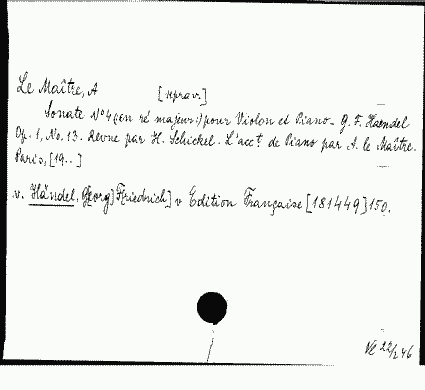 Le Maître, A [uprav.]
Sonate No 4 (en ré majeur) pour Violon et Piano - G. F. Haendel
Op. 1, No. 13. Revue par H. Schickel. L'acct. de Piano par A. le Maître.
Paris, [19..]
v. Händel, G[eorg] F[riedrich] v Edition Française [181449] 150.
VE 22/246